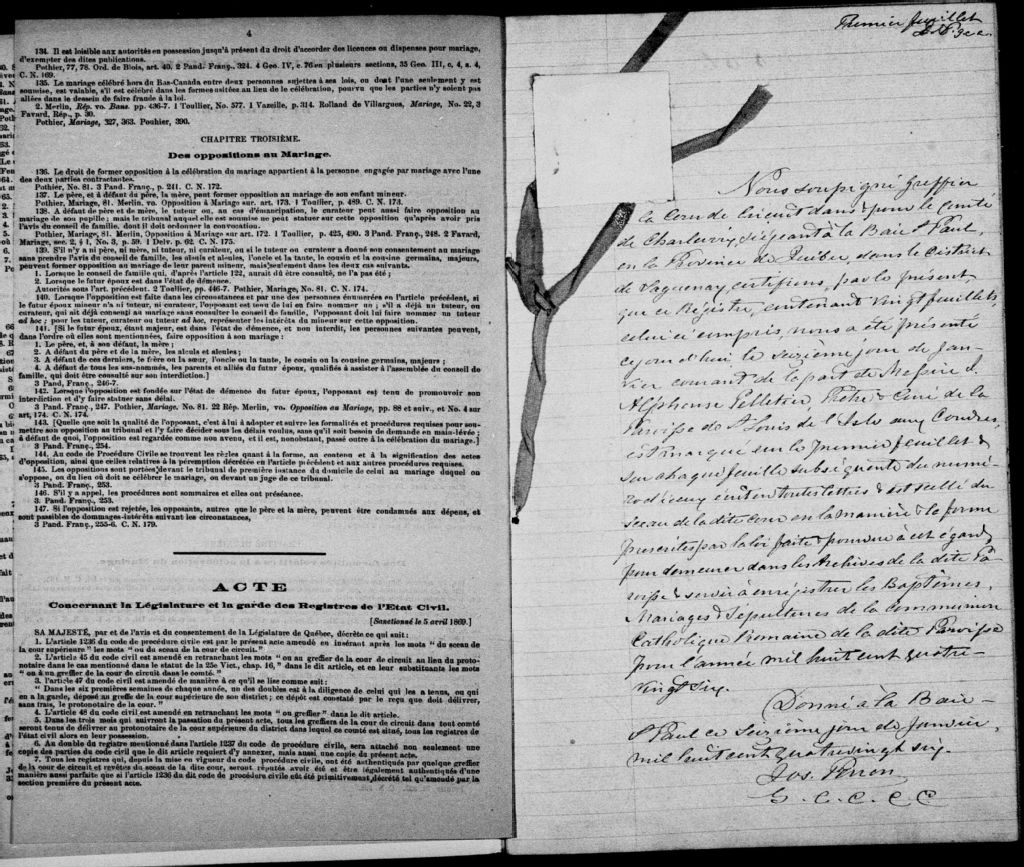 4
134. Il est loisible aux autorités en possession jusqu'à présent du droit d'accorder des licences ou dispenses pour mariage,
d'exempter des dites publications.
Pothier, 77, 78. Ord. de Blois, art. 40. 2 Pand. Franç., 324. 4 Geo. IV, c. 76 en plusieurs sections, 35 Geo. III, c, 4, s. 4,
C. N. 169.
135. Le mariage célébré hors du Bas-Canada entre deux personnes sujettes à ses lois, ou dont l'une seulement y est
soumise, est valable, s'il est célébré dans les formes usitées au lieu de la célébration, pourvu que les parties n'y soient pas
allées dans le dessein de faire fraude à la loi.
2. Merlin, Rép. vo. Bans. pp. 436-7. 1 Toullier, No. 577. 1 Vazeille, p. 314. Rolland de Villargues, Mariage, No. 22, 3
Favard. Rép., p. 30.
Pothier, Mariage, 327, 363. Pouhier, 390.
CHAPITRE TROISIÈME.
Des oppositions au Mariage.
136. Le droit de former opposition à la célébration du mariage appartient à la personne engagée par mariage avec l'une
des deux parties contractantes.
Pothier, No. 81. 3 Pand. Franç., p. 241. C. N. 172.
137. Le père, et à défaut du père, la mère, peut former opposition au mariage de son enfant mineur.
Pothier, Mariage, 81. Merlin, vo. Opposition à Mariage sur. art. 173. 1 Toullier, p. 489. C. N. 173.
138. A défaut de père et de mère, le tuteur ou, au cas d'émancipation, le curateur peut aussi faire opposition au
mariage de son pupille; mais le tribunal auquel elle est soumise ne peut statuer sur cette opposition qu'après avoir pris
l'avis du conseil de famille, dont il doit ordonner la convocation.
Pothier, Mariage, 81. Merlin, Opposition à Mariage sur art. 172. 1 Toullier, p. 425, 490. 3 Pand. Franç., 248. 2 Favard,
Mariage, sec. 2, § 1, No. 3, p. 59. 1 Delv. p. 62. C. N. 175.
139. S'il n'y a ni père, ni mère, ni tuteur, ni curateur, ou si le tuteur ou curateur a donné son consentement au mariage
sans prendre l'avis du conseil de famille, les aïeuls et aïeules, l'oncle et la tante, le cousin et la cousine germains, majeurs,
peuvent former opposition au mariage de leur parent mineur, mais seulement dans les deux cas suivants.
1. Lorsque le conseil de famille qui, d'après l'article 122, aurait dû être consulté, ne l'a pas été;
2. Lorsque le futur époux est dans l'état de démence.
Autorités sous l'art. précédent. 2 Toullier, pp. 446-7. Pothier, Mariage, No. 81. C. N. 174.
140. Lorsque l'opposition est faite dans les circonstances et par une des personnes énumérées en l'article précédent, si
le futur époux mineur n'a ni tuteur, ni curateur, l'opposant est tenu de lui en faire nommer un; s'il a déjà un tuteur, ou
curateur, qui ait déjà consenti au mariage sans consulter le conseil de famille, l'opposant doit lui faire nommer un tuteur
ad hoc; pour les tuteur, curateur ou tuteur ad hoc, représenter les intérêts du mineur sur cette opposition.
141. [Si le futur époux, étant majeur, est dans l'état de démence, et non interdit, les personnes suivantes peuvent,
dans l'ordre où elles sont mentionnées, faire opposition à son mariage:
1. Le père, et, à son défaut, la mère;
2. A défaut du père et de la mère, les aïeuls et aïeules;
3. A défaut de ces derniers, le frère ou la sœur, l'oncle ou la tante, le cousin ou la cousine germains, majeurs;
4. A défaut de tous les sus-nommés, les parents et alliés du futur époux, qualifiés à assister à l'assemblée du conseil de
famille, qui doit être consulté sur son interdiction.]
3 Pand. Franç., 246-7.
142. Lorsque l'opposition est fondée sur l'état de démence du futur époux, l'opposant est tenu de promouvoir son
interdiction et d'y faire statuer sans délai.
3 Pand. Franç., 247. Pothier, Mariage. No. 81. 22 Rép. Merlin, vo. Opposition au Mariage, pp. 88 et suiv., et No. 4 sur
art. 174. C. N. 174.
143. [Quelque soit la qualité de l'opposant, c'est à lui à adopter et suivre les formalités et procédures requises pour sou-
mettre son opposition au tribunal et l'y faire décider sous les délais voulus, sans qu'il soit besoin de demande en main-lévée:
à défaut de quoi, l'opposition est regardée comme non avenu, et il est, nonobstant, passé outre à la célébration du mariage.]
3 Pand. Franç., 254.
144. Au code de Procédure Civile se trouvent les règles quant à la forme, au contenu et à la signification des actes
d'opposition, ainsi que celles relatives à la péremption décrétée en l'article précédent et aux autres procédures requises.
145. Les oppositions sont portées devant le tribunal de première instance du domicile de celui au mariage duquel on
s'oppose, ou du lieu où doit se célébrer le mariage, ou devant un juge de ce tribunal.
3 Pand. Franç., 253.
146. S'il y a appel, les procédures sont sommaires et elles ont préséance.
3. Pand. Franç., 253.
147. Si l'opposition est rejetée, les opposants, autres que le père et la mère, peuvent être condamnés aux dépens, et
sont passibles de dommages-intérêts suivant les circonstances,
3 Pand. Franç., 255-6. C. N. 179.
ACTE
Concernant la Législature et la garde des Registres de l'Etat Civil.
[Sanctionné le 5 avril 1869.]
SA MAJESTÉ, par et de l'avis et du consentement de la Législature de Québec, décrète ce qui suit:
1. L'article 1236 du code de procédure civile est par le présent acte amendé en insérant après les mots "du sceau de
la cour supérieure" les mots "ou du sceau de la cour de circuit."
2. L'article 45 du code civil est amendé en retranchant les mots "ou au greffier de la cour de circuit au lieu du proto-
notaire dans le cas mentionné dans le statut de la 25e Vict., chap. 16," dans le dit article, et en leur substituant les mots
"ou à un greffier de la cour de circuit dans le comté."
3. l'article 47 du code civil est amendé de manière à ce qu'il se lise comme suit:
"Dans les six premières semaines de chaque année, un des doubles est à la diligence de celui qui les a tenus, ou qui
en a la garde, déposé au greffe de la cour supérieure de son district; ce dépôt est constaté par le reçu que doit délivrer,
sans frais, le protonotaire de la cour."
4. L'article 48 du code civil est amendé en retranchant les mots "ou greffier" dans le dit article.
5. Dans les trois mois qui suivront la passation du présent acte, tous les greffiers de la cour de circuit dans tout comté
seront tenus de délivrer au protonotaire de la cour supérieure du district dans lequel ce comté est situé, tous les registres de
l'état civil alors en leur possession.
6. Au double du registre mentionné dans l'article 1237 du code de procédure civile, sera attaché non seulement une
copie des parties du code civil que le dit article requiert d'y annexer, mais aussi une copie du présent acte.
7. Tous les registres qui, depuis la mise en vigueur du code procédure civile, ont été authentiqués par quelque greffier
de la cour de circuit et revêtus du sceau de la dite cour, seront réputés avoir été et être légalement authentiqués d'une
manière aussi parfaite que si l'article 1236 du dit code de procédure civile eût été primitivement décrété tel qu'amendé par la
section première du présent acte.
Premier feuillet
Nous soussigné Greffier
la Cour de Circuit dans & pour le Comté
de Charlevoix, Siégeant à la Baie St Paul,
en la Province de Québec, dans le District
de Saguenay, certifions, par le présent
que ce Régistre, contenant vingt feuillets
celui ci compris, nous a été présenté
ce jour d'hui le seizième jour de Jan-
vier courant de la part de Messire d.
Alphonse Pelletier, Prêtre & Curé de la
Paroisse de St Louis de l'Isle aux Coudres,
est marqué sur le premier feuillet &
sur chaque feuillet subséquent du numé-
ro d'iceux écrit en toutes lettres & est scellé du
sceau de la dite cour en la manière & la forme
prescrites par la loi faite & pourvue à cet égard,
pour demeurer dans les Archives de la dite Pa-
roisse & servir à enrégistrer les Baptêmes,
Mariages & Sépultures de la Communion
Catholique Romaine de la dite Paroisse
pour l'année mil huit cent quatre-
vingt six.
Donné à la Baie-
St Paul ce seizième jour de Janvier
mil huit cent quatrevingt six.
Jos. Perron
G. C. C. C C